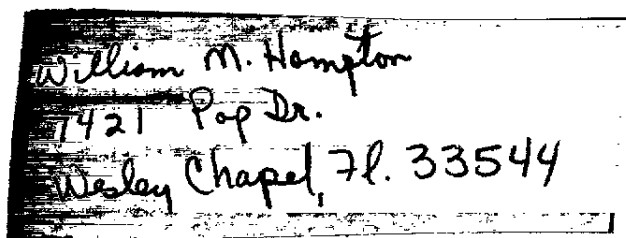 William M. Hampton
7421 Pop Dr.
Wesley Chapel, Fl. 33544